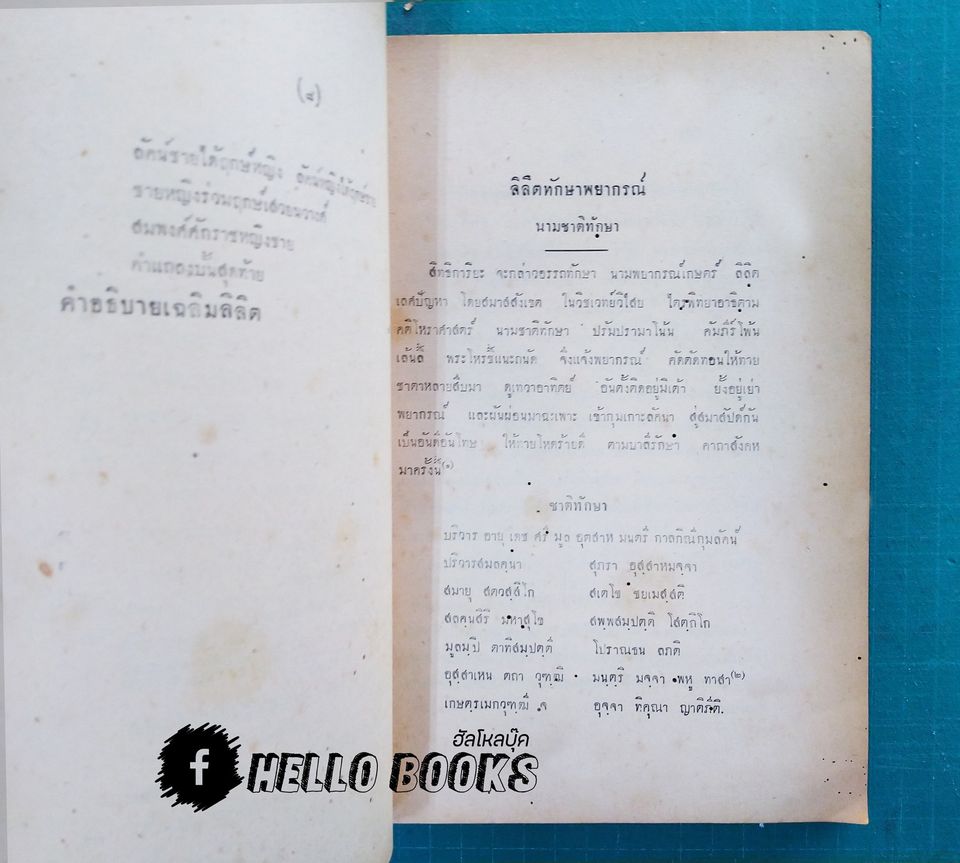 (๔)
ลัคน์ชายได้ฤกษ์หญิง ลัคน์หญิงได้ฤกษ์ชาย
ชายหญิงร่วมฤกษ์เสวยนวางค์
สมพงศ์ศักราชหญิงชาย
คำแถลงบั้นสุดท้าย
คำอธิบายเฉลิมลิลิต
ลิลิตทักษาพยากรณ์
นามชาติทักษา
สิทธิการิยะ จะกล่าวอรรถทักษา นามพยากรณ์เกษตร์ ลิลิต
เลศปัญหา โดยสมาสสังเขต ในวิชเวทย์วิไสย ไตรพิทยาอาธิตาม
คติโหราศาสตร์ นามชาติทักษา ปรัมปรามาโน้น คัมภีร์โพ้น
เล้นลี้ พระโหรชี้แนะถนัด จึ่งแจ้งพยากรณ์ คัดตัดทอนให้ทาย
ชาตาหลายสืบมา ดูเทวาอาทิตย์ อันตั้งติดอยู่มิเต้า ยั้งอยู่เย่า
พยากรณ์ และผันผ่อนมาฉะเพาะ เข้ากุมเกาะลัคนา สู่สมาสัปด์กัน
เป็นอันดีอันโทษ ให้ทายโหดร้ายดี ตามบาลีรักษา คาถาสังคห
มาครั้งนี้(๑)
ชาติทักษา
บริวาร อายุ เดช ศรี มูล อุตสาห มนตรี กาลกิณีกุมลัคน์
บริวารสมลคฺนา สุภรา อุสฺสาหมจฺจา
สมายุ สตวสฺสิโก สเตโช ชยเมสฺสติ
สลคฺนสิริ มหาสุโข สพฺพสมฺปตฺติ โสตฺถิโก
มูลมฺปิ ตาทีสมฺปตฺติ โปราณธน ลภติ
อุสฺสาเหน ตถา วุฑฺฒิ มนฺตฺริ มจฺจา พหู ทาสา(๒)
เกษตฺรเมกวุฑฺฒิ จ อุจฺจา ทิคุณา ญาติรีติ.
ฮัลโหลบุ๊ค
f HELLO BOOKS